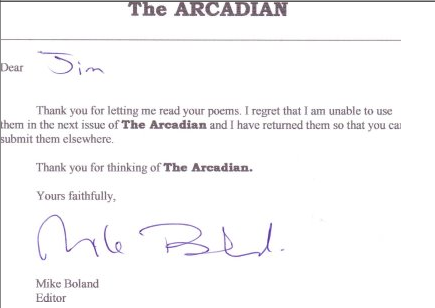 The ARCADIAN
Dear Jim
Thank you for letting me read your poems. I regret that I am unable to use
them in the next issue of The Arcadian and I have returned them so that you can
submit them elsewhere.
Thank you for thinking of The Arcadian.
Yours faithfully,
Mike Boland.
Mike Boland
Editor